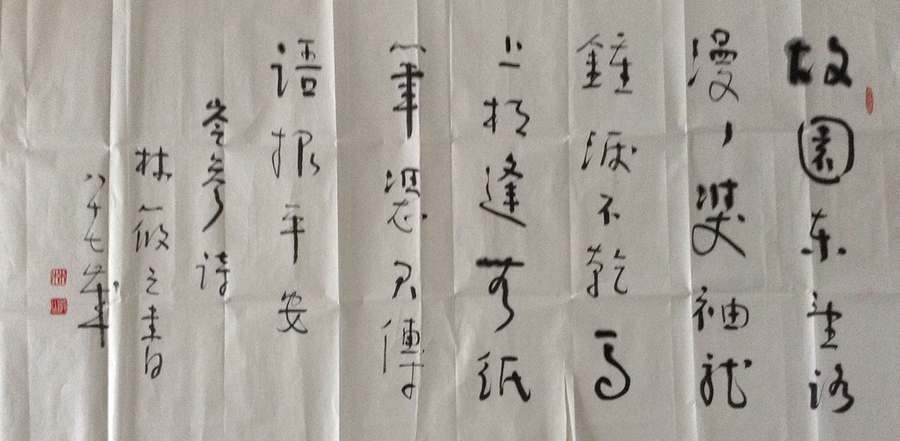 故園东望路
漫〻雙袖龍
鍾淚不乾馬
上相逢无紙
筆憑君傳
語報平安
岑參詩
林筱之書
八十七歲